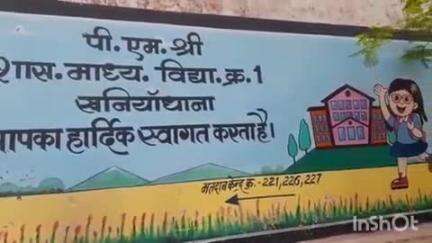 पी. एम. श्री
शास. माध्य. विद्या. क्र. 1
खनियाँधाना
आपका हार्दिक स्वागत करता है।
मतदान केन्द्र क्र. - 221, 226, 227
InShOt